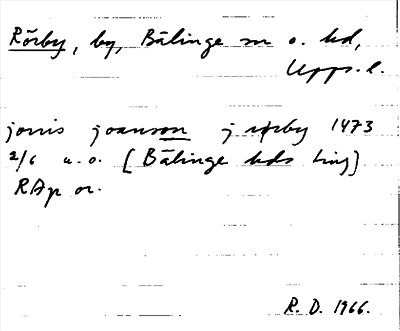 Rörby, by, Bälinge sn o. hd,
Upps. l.
jonis joansson j rørby 1473
2/6 u. o. [Bälinge hds ting]
RAp or.
R. D. 1966.